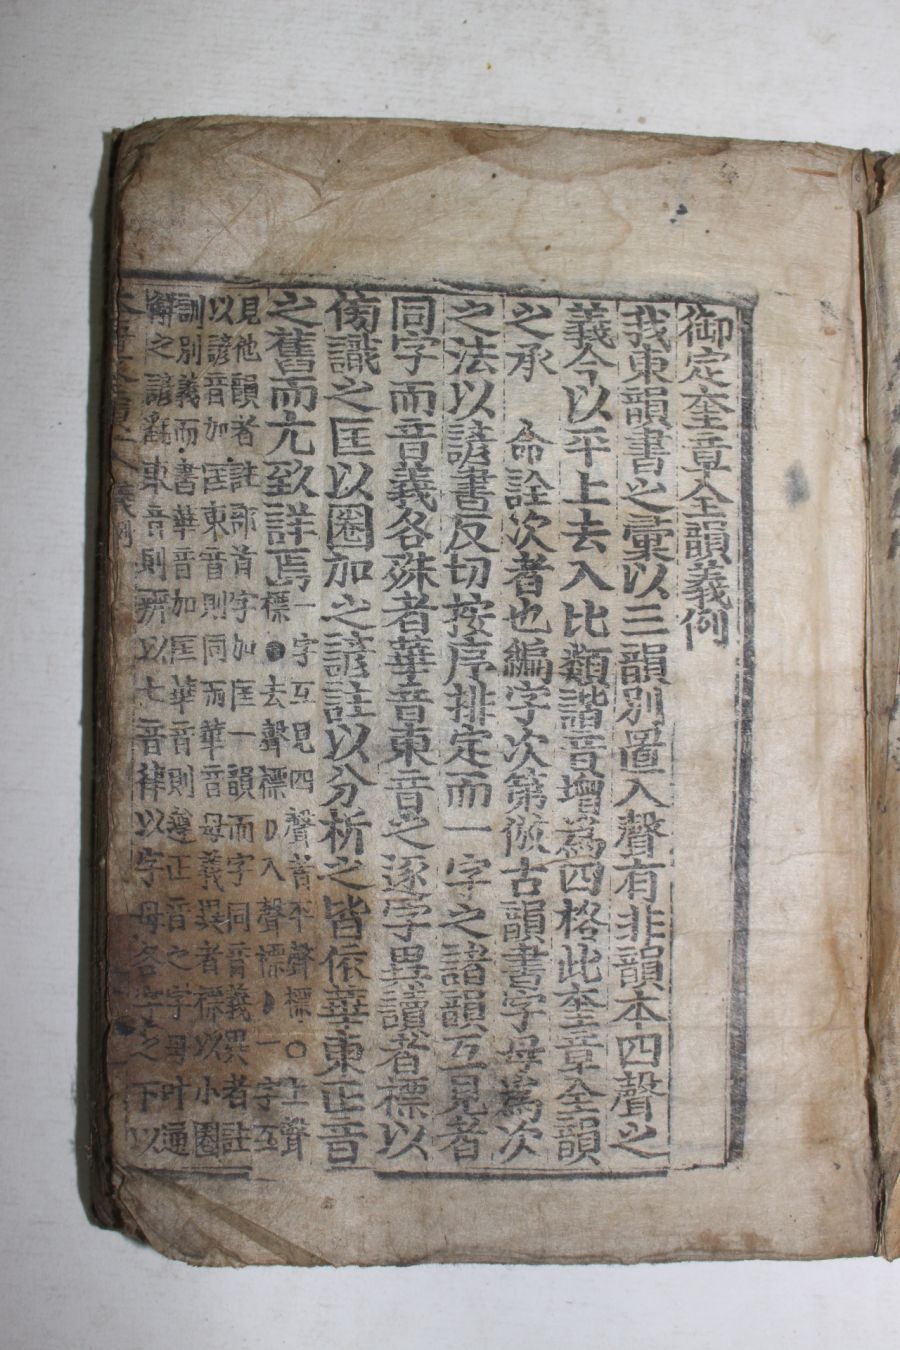 御定奎章全韻義例
我東韻書之彙以三韻別置入聲有非韻本四聲之
義今以平上去入比類諧音增爲四格此奎章全韻
之承 命詮次者也編字次第倣古韻書字母爲次
之法以諺書反切按序排定而一字之諸韻互見者
同字而音義各殊者華音東音之逐字異讀者標以
傍識之匡以圈加之諺註以分析之皆依華東正音
之舊而尤致詳焉
一字互見四聲者平聲標○上聲
標●去聲標◗入聲標◗一字互
見他韻者註部首字加匡一韻而字同音義異者註
以諺音加匡東音則同而華音母義異者標以小圈
訓別義而書華音加匡華音則遵正音之字母叶通
解之諺飜東音則辨以七音律以字母各字之下以